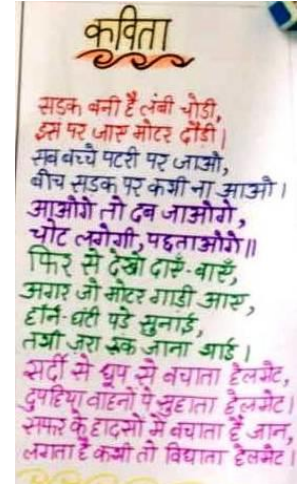 कविता
सड़क बनी है लंबी चोड़ी,
इस पर जाए मोटर दौड़ी।
सब बच्चे पटरी पर जाओ,
बीच सड़क पर कभी ना आओ।
आओगे तो दब जाओगे,
चोट लगेगी, पछताओगे॥
फिर से देखो दाएँ-बाएँ,
अगर जो मोटर गाडी आए,
हॉर्न-घंटी पडे सुनाई,
तभी जरा रुक जाना भाई।
सर्दी से धूप से बचाता हैलमेट,
दुपहिया वाहनों पे सुहाता हेलमेट।
सफर के हादसों में बचाता है जान,
लगता है कभी तो विधाता हेलमेट।